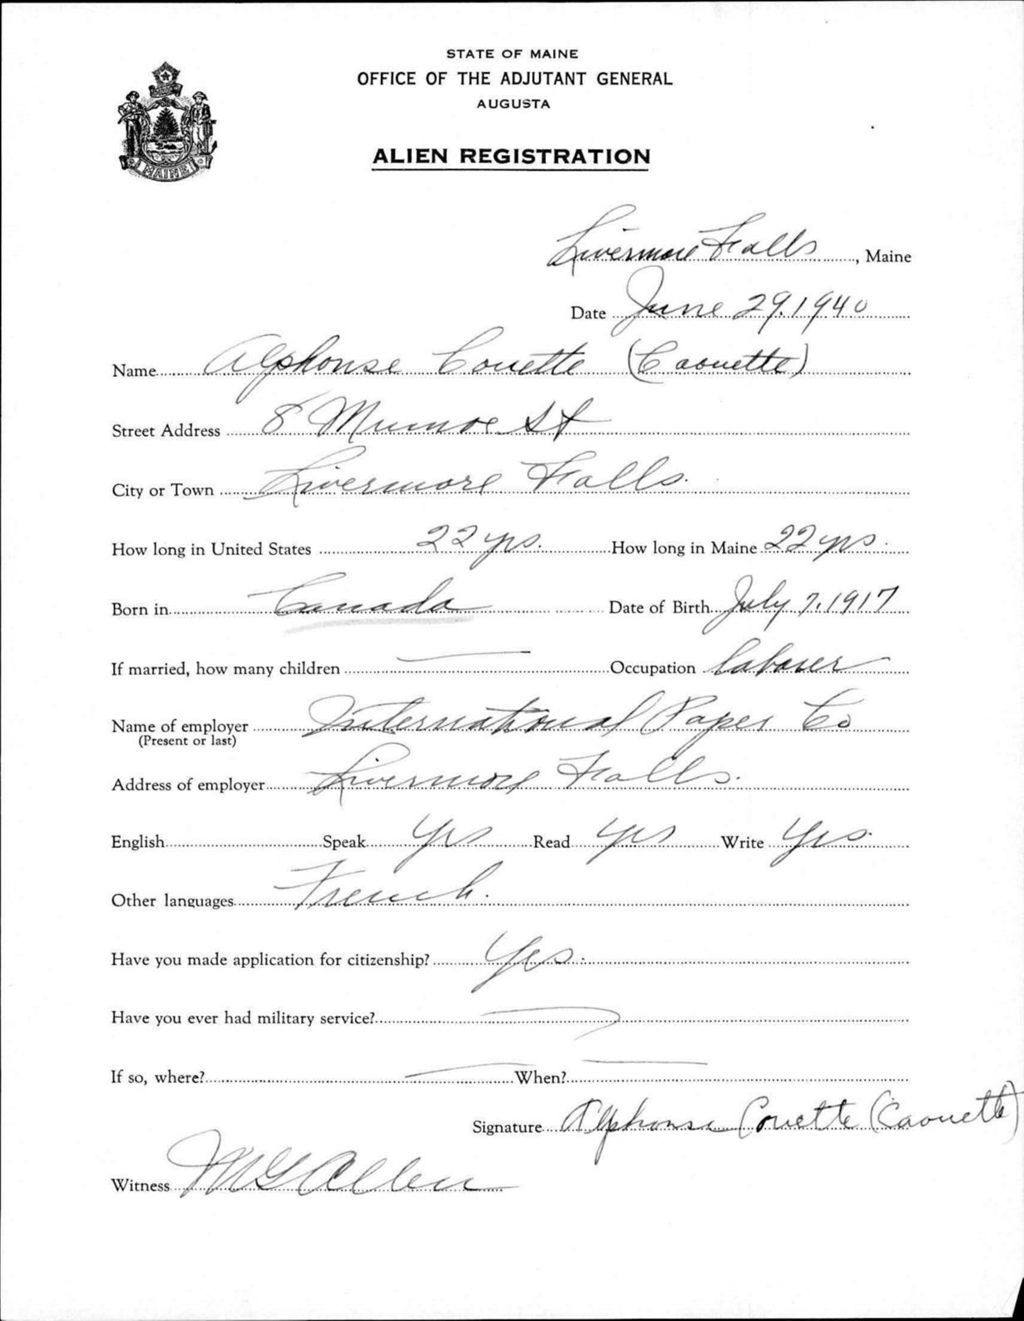 STATE OF MAINE
OFFICE OF THE ADJUTANT GENERAL
AUGUSTA
ALIEN REGISTRATION
MAINE
Livermore Falls, Maine
Date June 29, 1940
Name Alphonse Couette (Caouette)
Street Address 8 Munroe St
City or Town Livermore Falls.
How long in United States 22 yrs. How long in Maine 22 yrs.
Born in Canada Date of Birth July 7, 1917
If married, how many children — Occupation laborer
Name of employer International Paper Co
(Present or last)
Address of employer Livermore Falls.
English Speak Yes Read Yes Write Yes.
Other languages French.
Have you made application for citizenship? Yes.
Have you ever had military service? —
If so, where? — When? —
Signature Alphonse Couette (Caouette)
Witness M G Allen